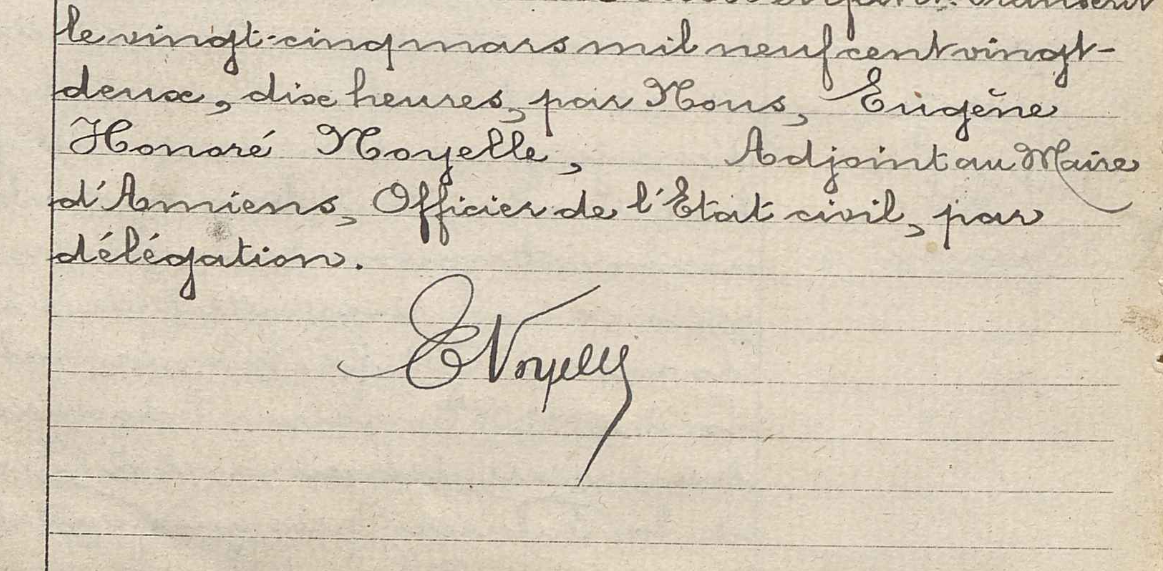 transcrit
le vingt-cinq mars mil neuf cent vingt-
deux, dix heures, par Nous, Eugène
Honoré Noyelle, Adjoint au Maire
d'Amiens, Officier de l'Etat civil, par
délégation.
ENoyelle